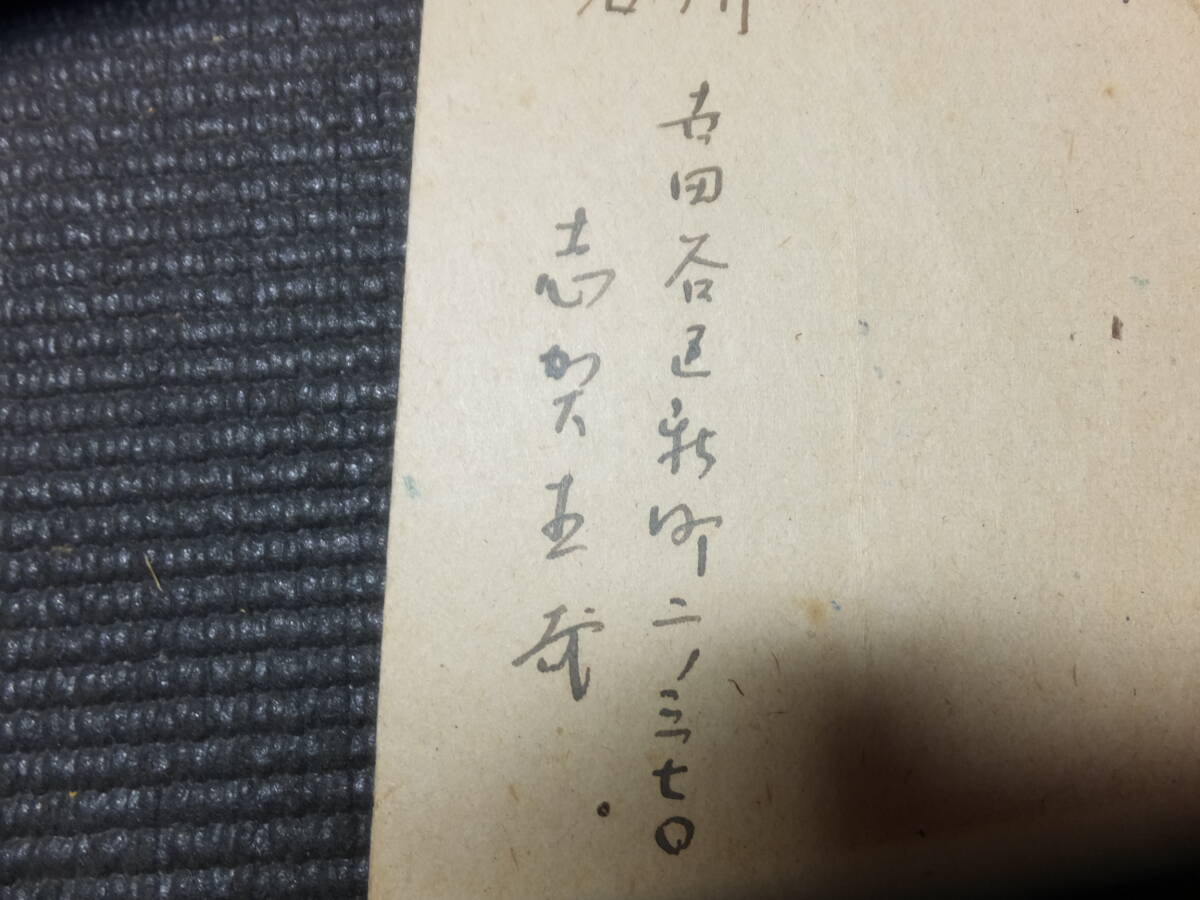 世田谷区新町二ノ三七〇
志賀直哉